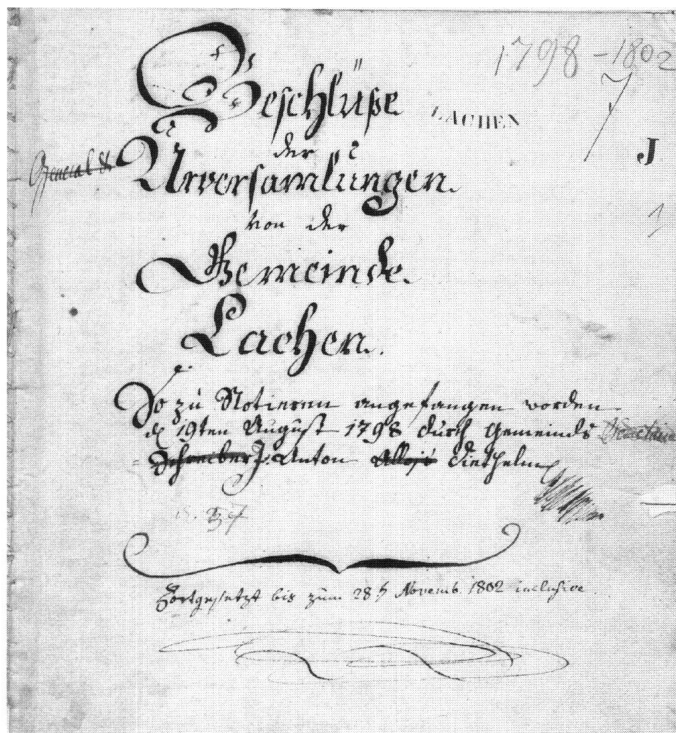 1798 – 1802
7
Beschlüße
LACHEN
J
der
General &
Urversamlungen.
von der
1
Gemeinde.
Lachen.
So zu Notieren angefangen worden
d 19ten August 1798 durch Gemeinds
Schreiber J. Anton Alloys Diethelm
Fortgesetzt bis zum 28t Novemb. 1802 inclusive.